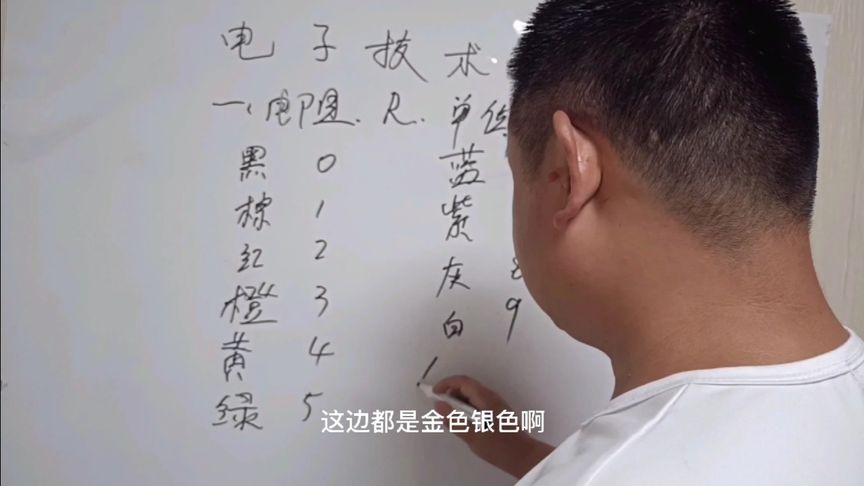 电子技术
一、电阻.R.单位
黑 0 蓝
棕 1 紫
红 2 灰 8
橙 3 白 9
黄 4
绿 5
这边都是金色银色啊